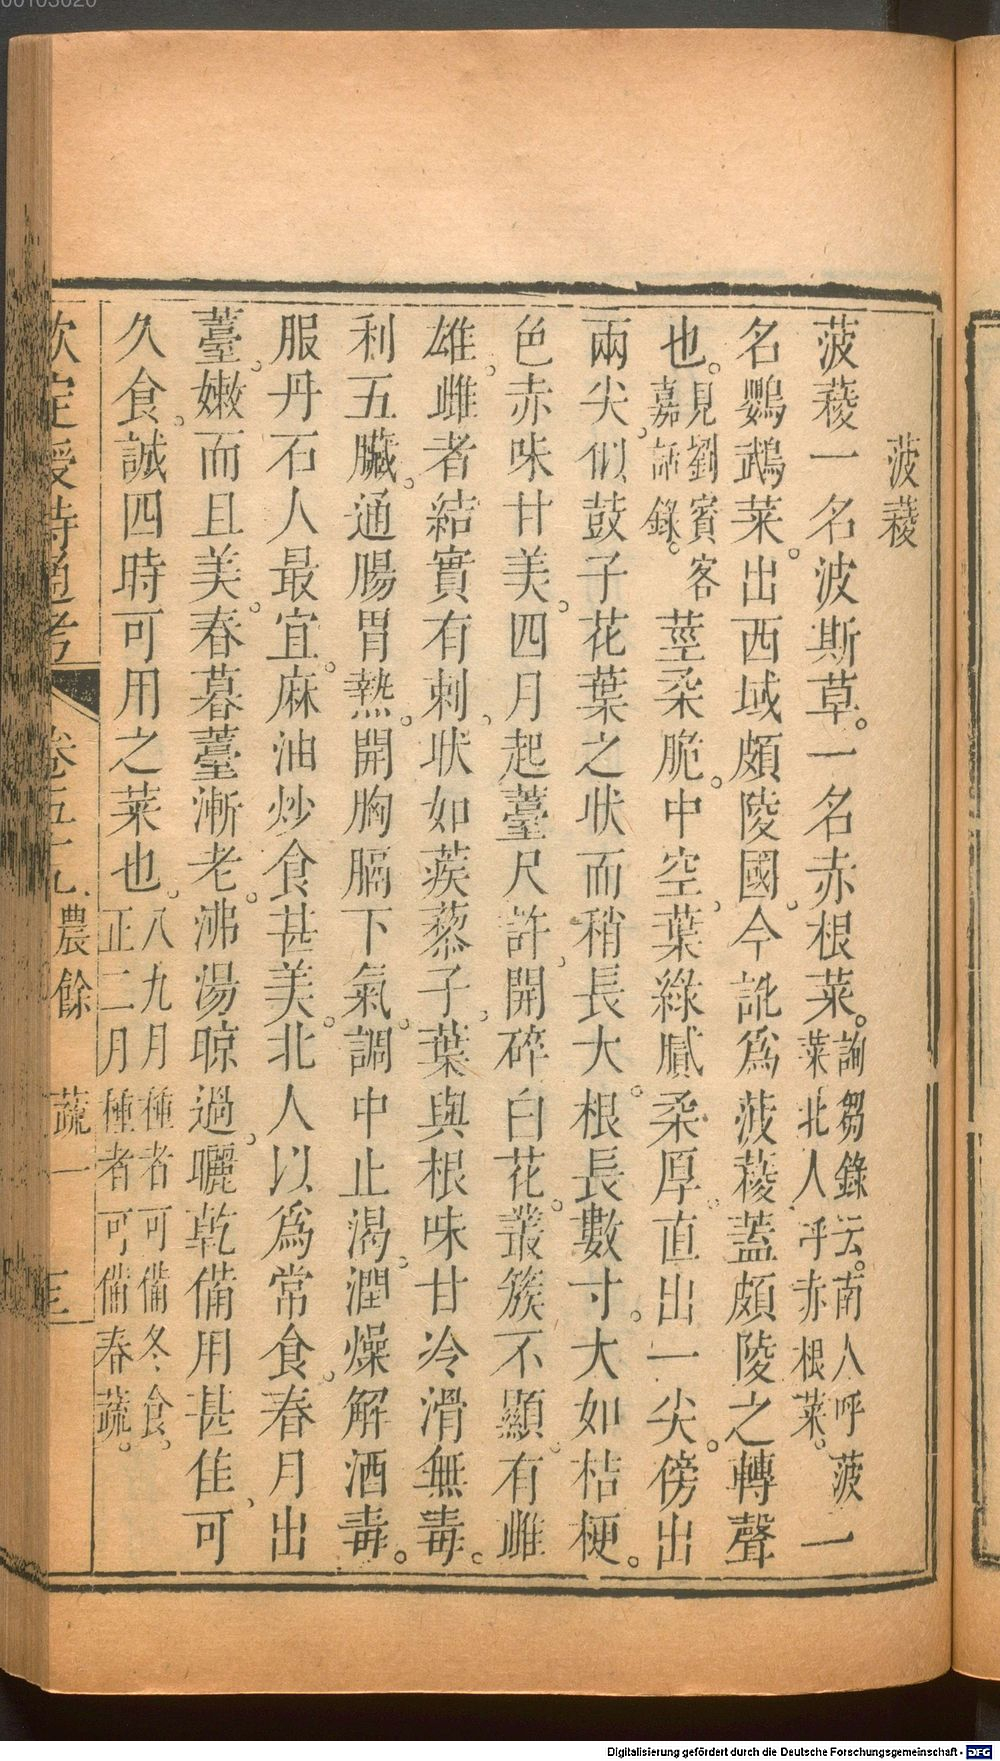 00103020
菠薐
菠薐一名波斯草。一名赤根菜。蒭錄云。南人呼菠菜北人呼赤根菜。一
名鸚鵡菜。出西域頗陵國。今訛爲菠薐蓋頗陵之轉聲
也。見劉賓客嘉話錄。莖柔脆。中空。葉綠膩柔厚。直出一尖。傍出
兩尖。似鼓子花葉之狀而稍長大。根長數寸。大如桔梗。
色赤味甘美。四月起薹尺許。開碎白花。叢簇不顯。有雌
雄。雌者結實有刺。狀如蒺藜子。葉與根味甘冷滑無毒。
利五臟。通腸胃熱。開胸膈下氣。調中止渴。潤燥解酒毒。
服丹石人最宜。麻油炒食甚美。北人以爲常食。春月出
薹。嫩而且美。春暮薹漸老。沸湯晾過。曬乾備用甚佳。可
久食。誠四時可用之菜也。八九月種者可備冬食。正二月種者可備春蔬。
欽定授時通考 卷五十九 農餘 蔬一
Digitalisierung gefördert durch die Deutsche Forschungsgemeinschaft - DFG